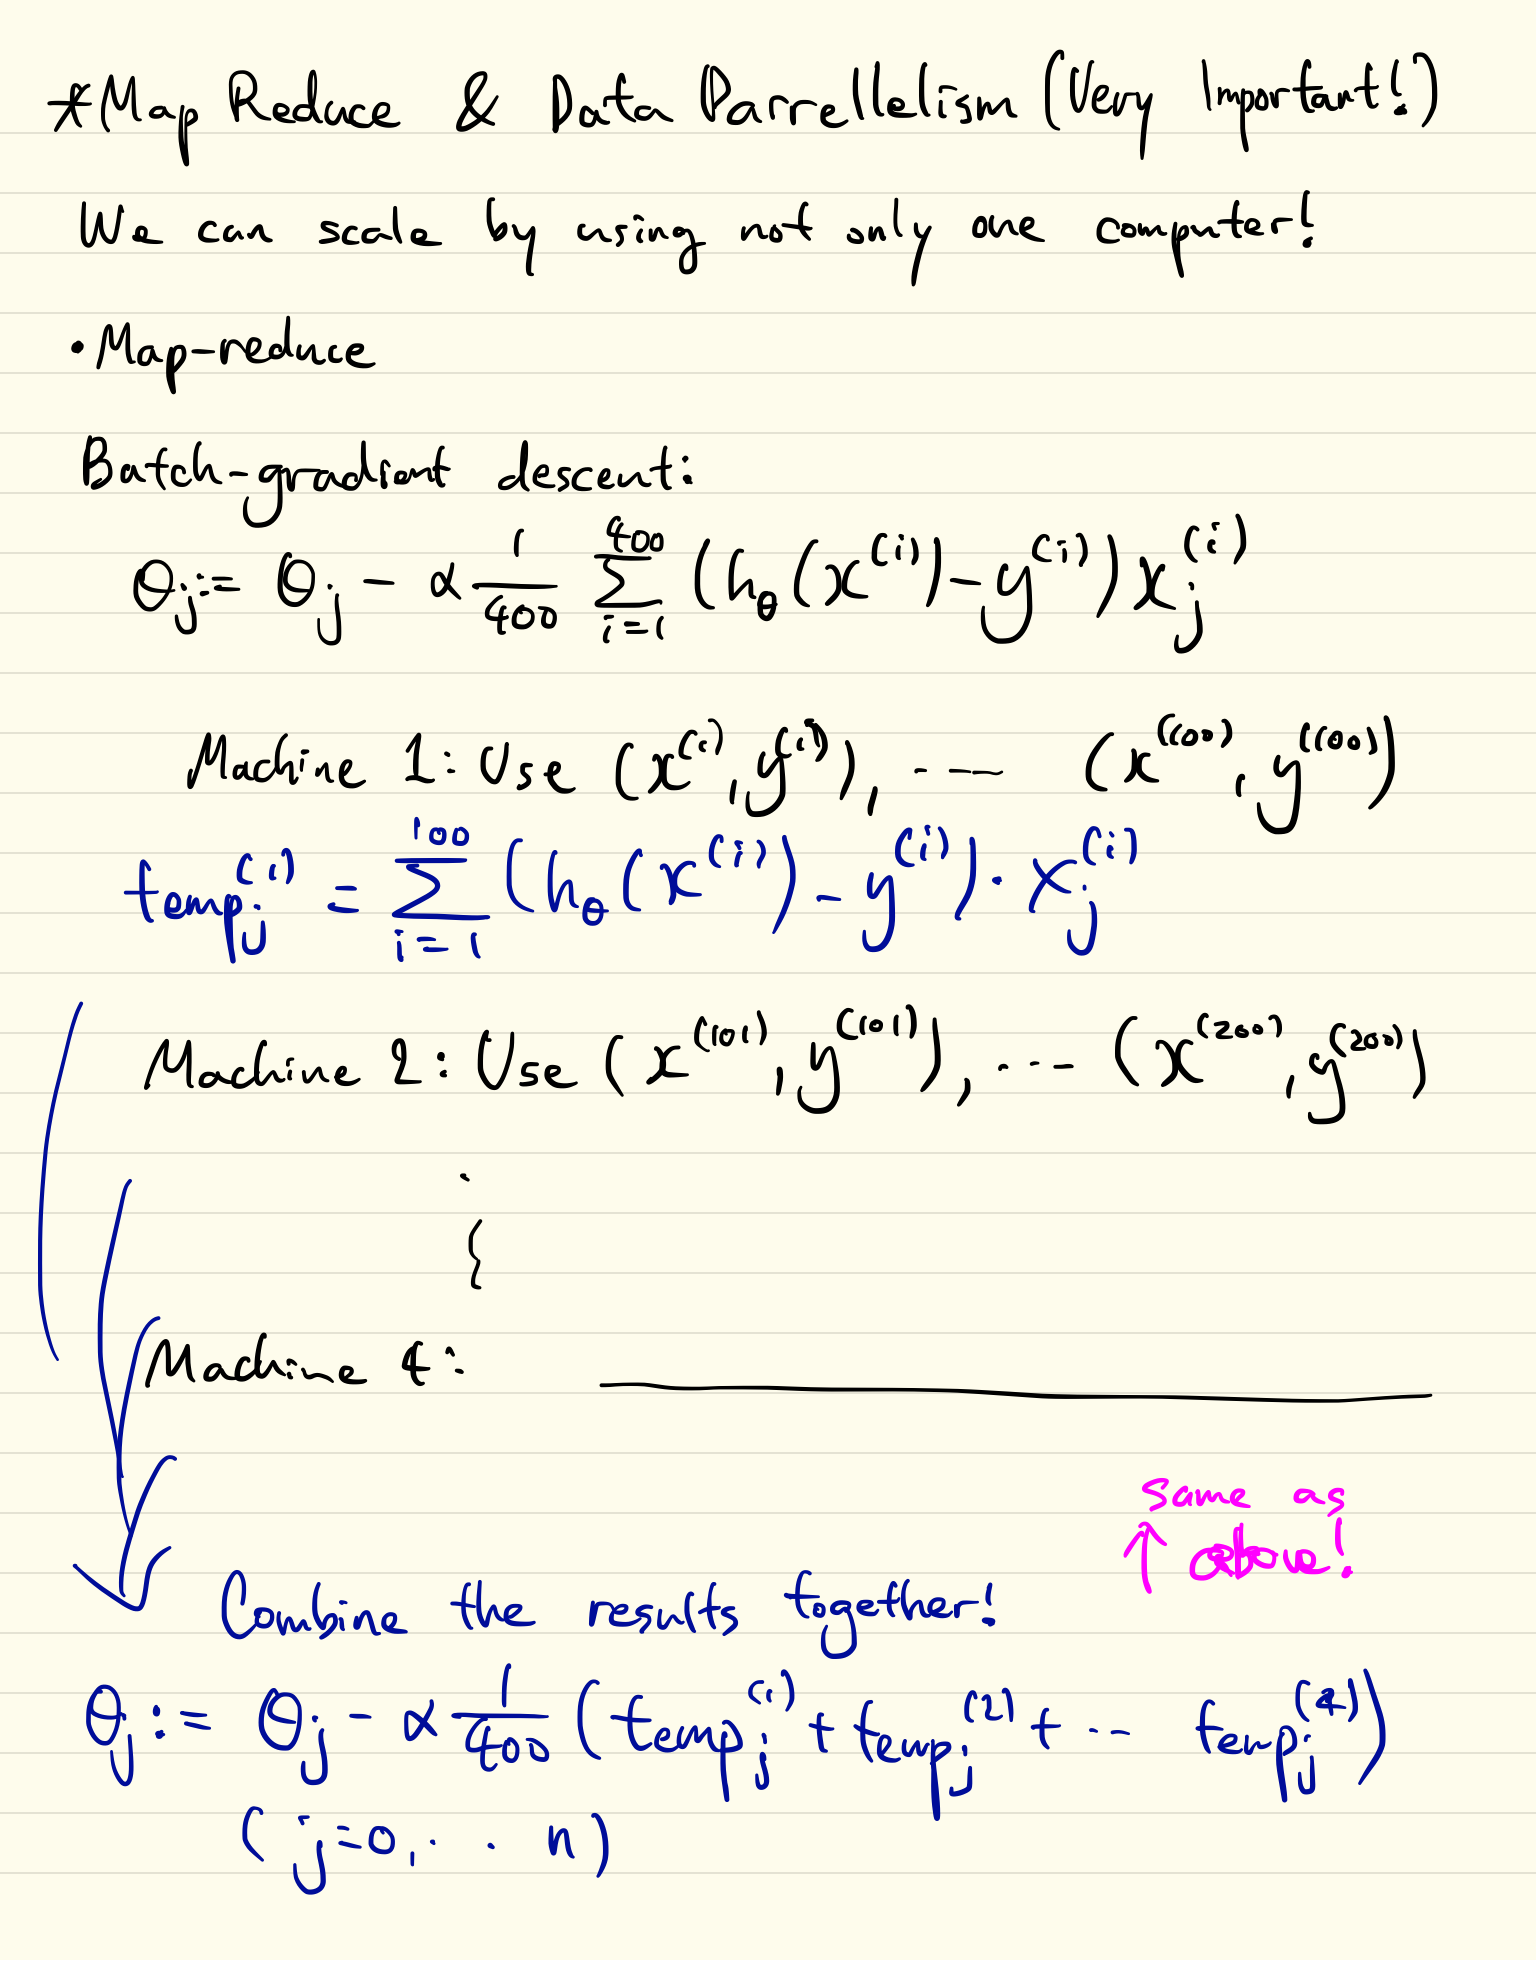 *Map Reduce & Data Parrellelism (Very Important!)
We can scale by using not only one computer!
• Map-reduce
Batch-gradient descent:
θ_j := θ_j - α 1/400 ∑_{i=1}^{400} (h_θ(x^(i)) - y^(i)) x_j^(i)
Machine 1: Use (x^(1), y^(1)), ... (x^(100), y^(100))
temp_j^(1) = ∑_{i=1}^{100} (h_θ(x^(i)) - y^(i)) · x_j^(i)
Machine 2: Use (x^(101), y^(101)), ... (x^(200), y^(200))
Machine 4:
same as
↑ above!
Combine the results together!
θ_j := θ_j - α 1/400 (temp_j^(1) + temp_j^(2) + ... temp_j^(4))
(j=0, . . n)